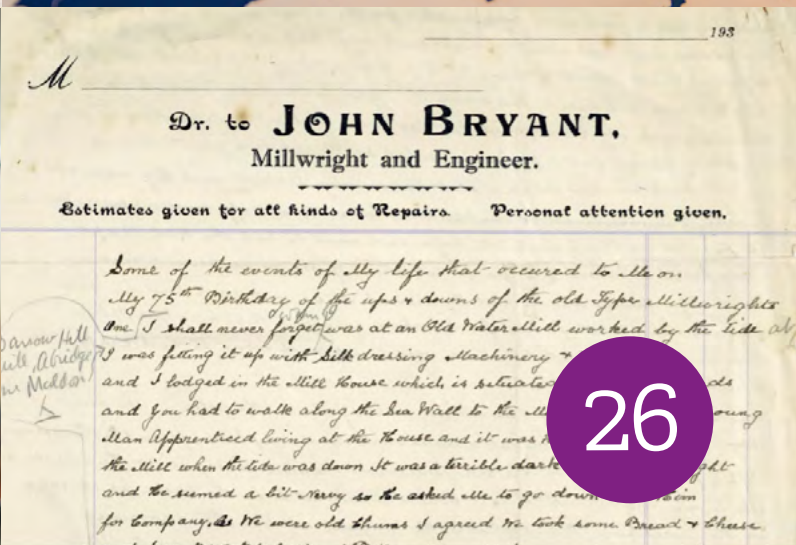 193
M
Dr. to JOHN BRYANT,
Millwright and Engineer.
Estimates given for all kinds of Repairs. Personal attention given.
Some of the events of My life that occured to Me on
My 75th Birthday of the ups & downs of the old Type Millwrights
One I shall never forget was at an Old Water Mill worked by the tide at
I was fitting it up with Silk dressing Machinery &
and I lodged in the Mill House which is setuated
and you had to walk along the Sea Wall to the young
Man Apprenticed living at the House and it was
the Mill when the tide was down It was a terrible dark
and he seemed a bit Nervy so he asked Me to go down him
for Company. As We were old Chums I agreed We took some Bread & Cheese
Mill
26